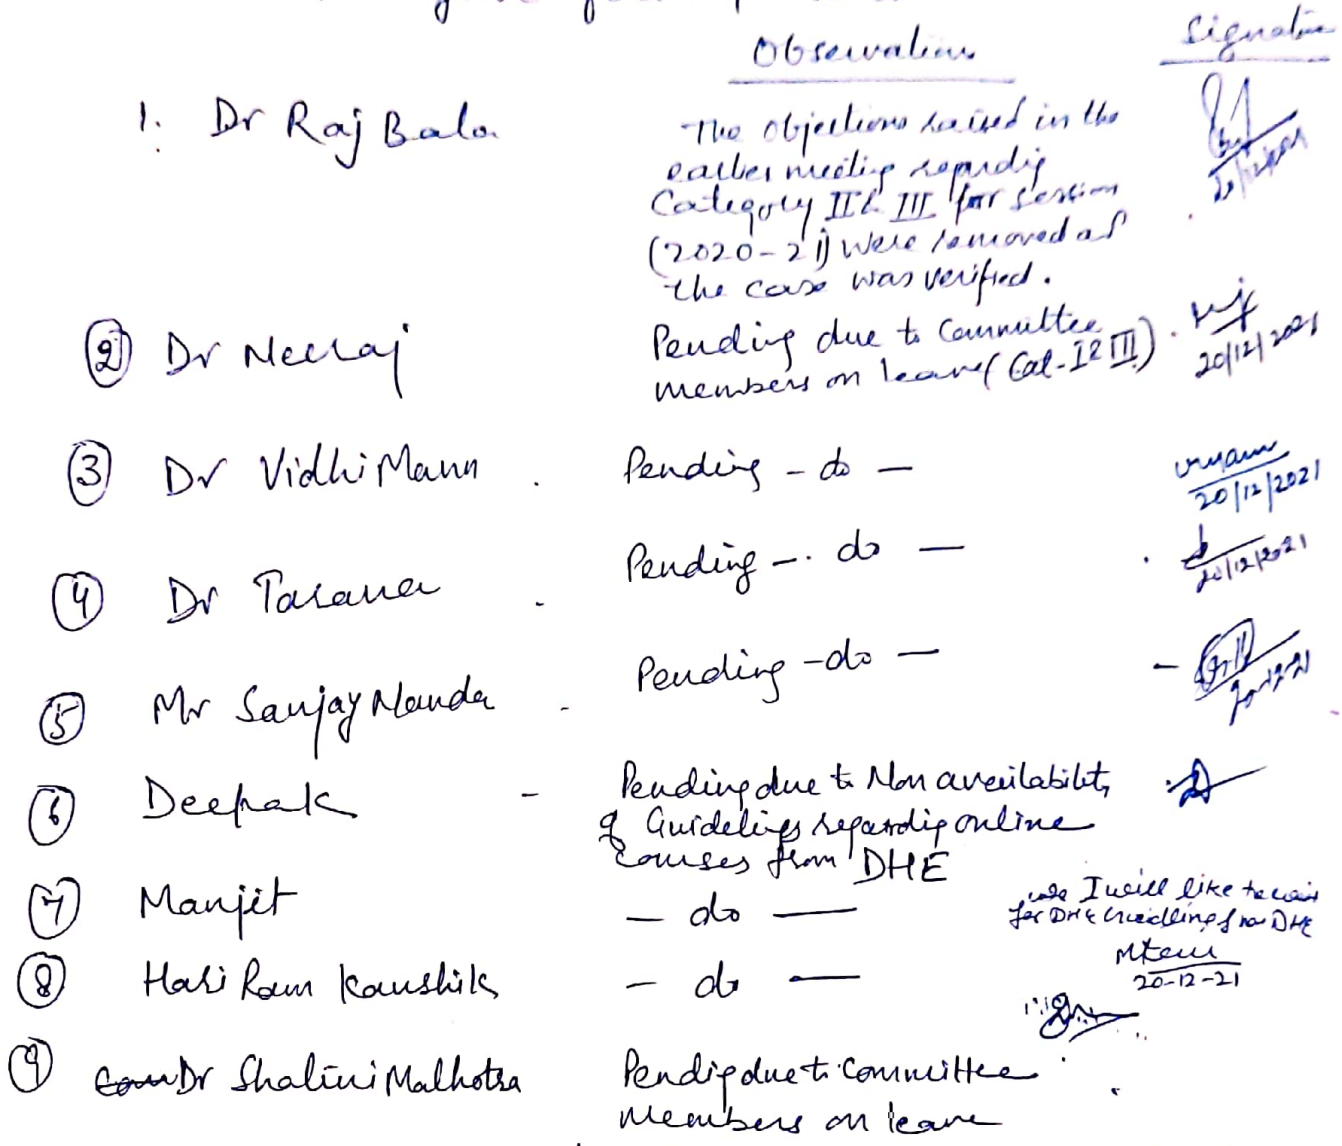 Observations
Signature
1. Dr Raj Bala
The objections raised in the
earlier meeting regarding
Category II & III for session
(2020-21) were removed as
the case was verified.
20/12/2021
② Dr Neeraj
Pending due to Committee
members on leave (Cat-I & III)
20/12/2021
③ Dr Vidhi Mann
Pending - do -
20/12/2021
④ Dr Taranа
Pending - do -
20/12/2021
⑤ Mr Sanjay Nanda
Pending - do -
20-12-21
⑥ Deepak -
Pending due to Non availability
of Guidelines regarding online
courses from DHE
⑦ Manjit
- do -
I will like to wait
for DHE Guidelines from DHE
20-12-21
⑧ Hari Ram Kaushik
- do -
⑨ Dr Shalini Malhotra
Pending due to Committee
members on leave